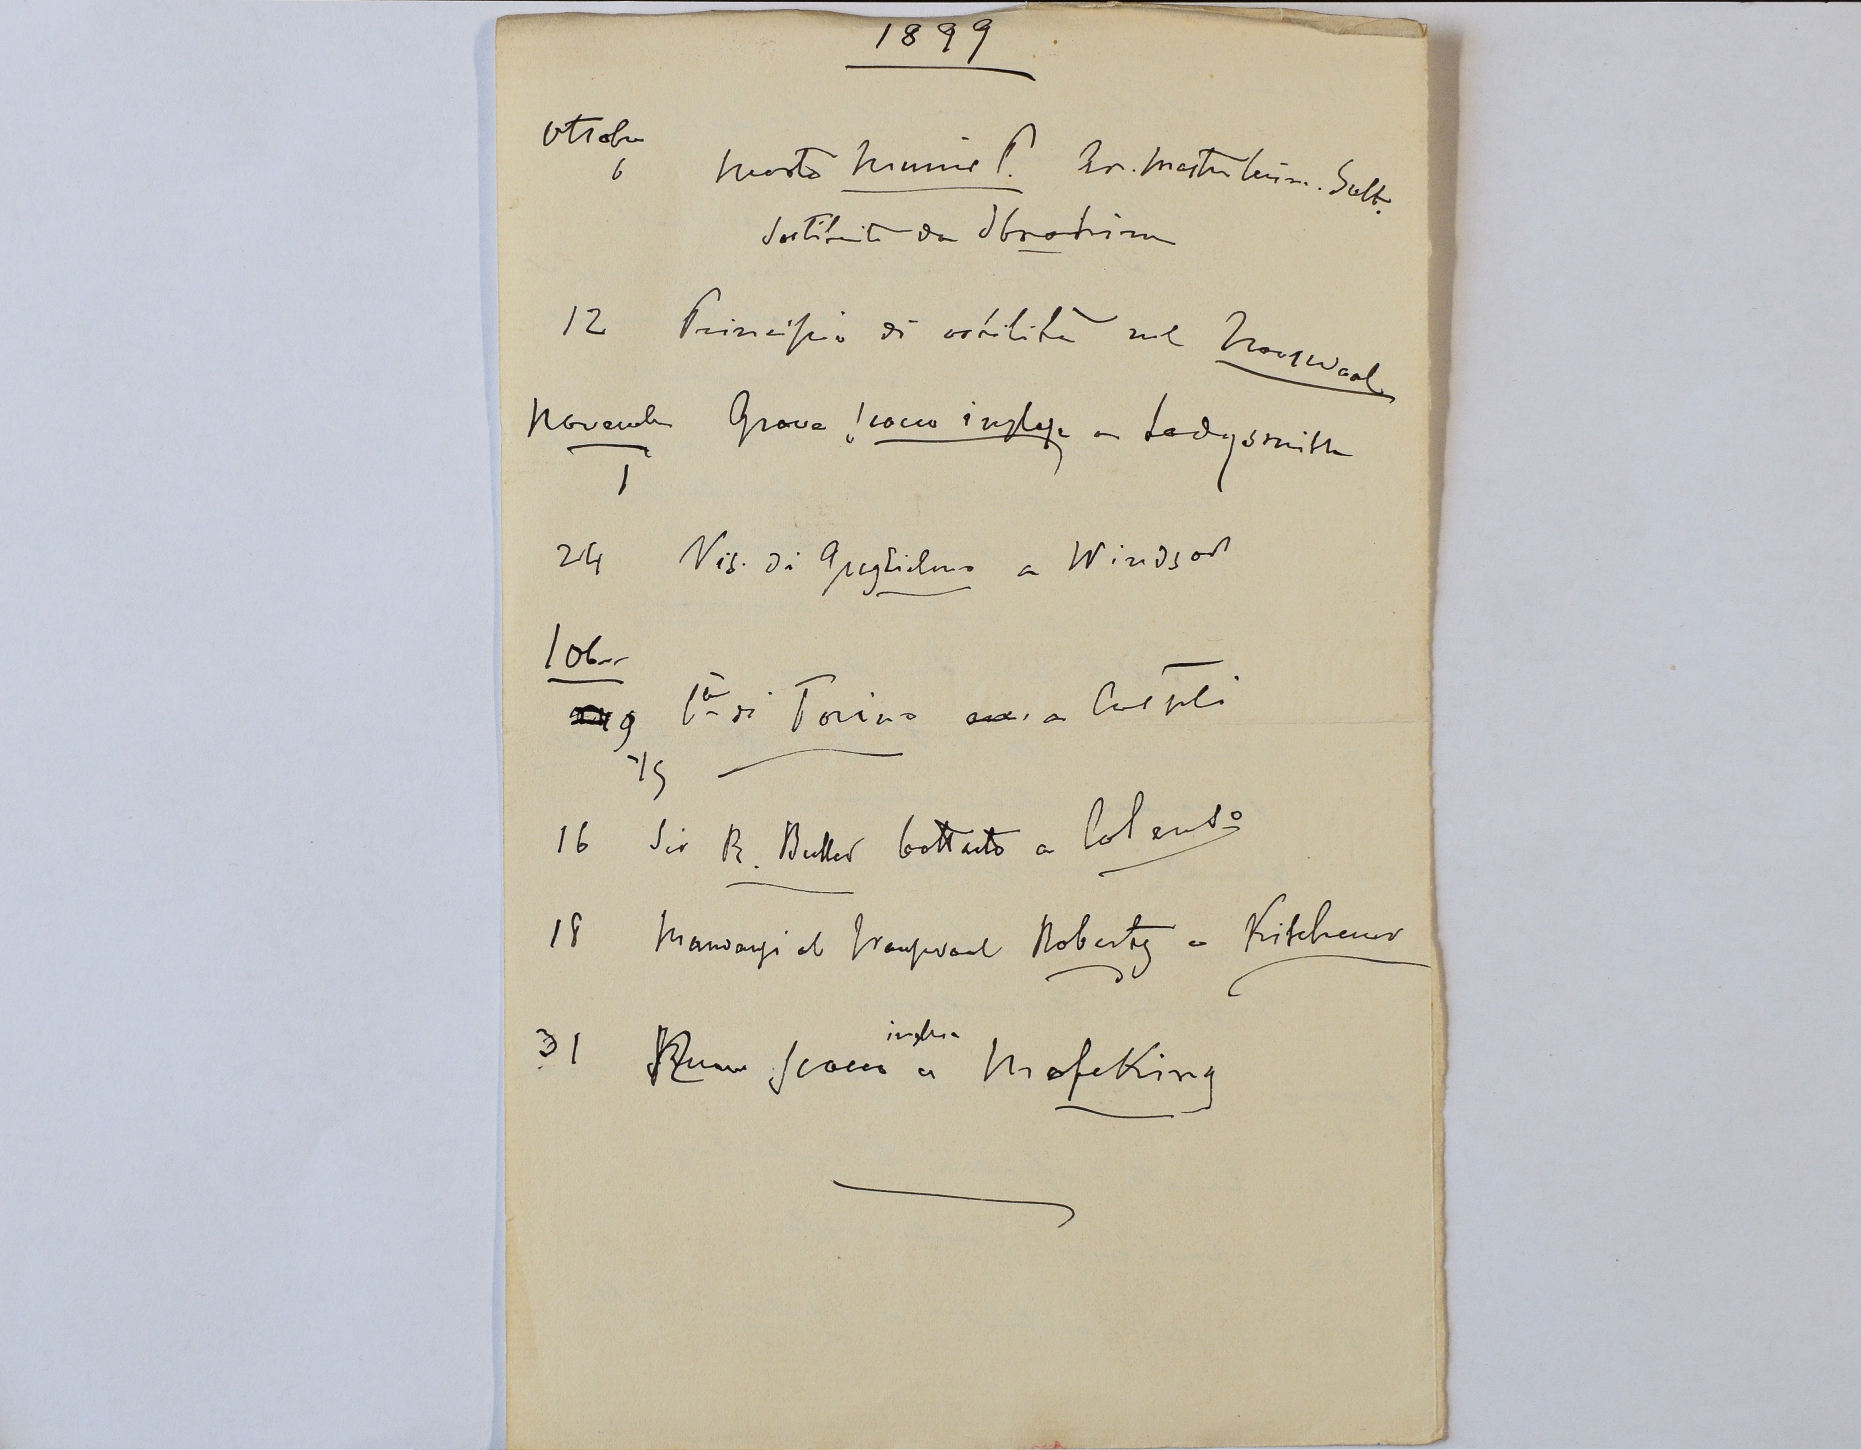 1899
Ottobre
6 Morto Munir P. Gr. Mastr. Cerim. Sult.
Sostituito da Ibrahim
12 Principio di ostilità nel Transvaal
Novembre Grave scacco inglese a Ladysmith
1
24 Vis. di Guglielmo a Windsor
10bre
9 C.ta di Torino a Costpli
15
16 Sir R. Buller battuto a Colenso
18 Mandansi al Transvaal Roberts e Kitchener
31 Nuovo scacco inglese a Mafeking